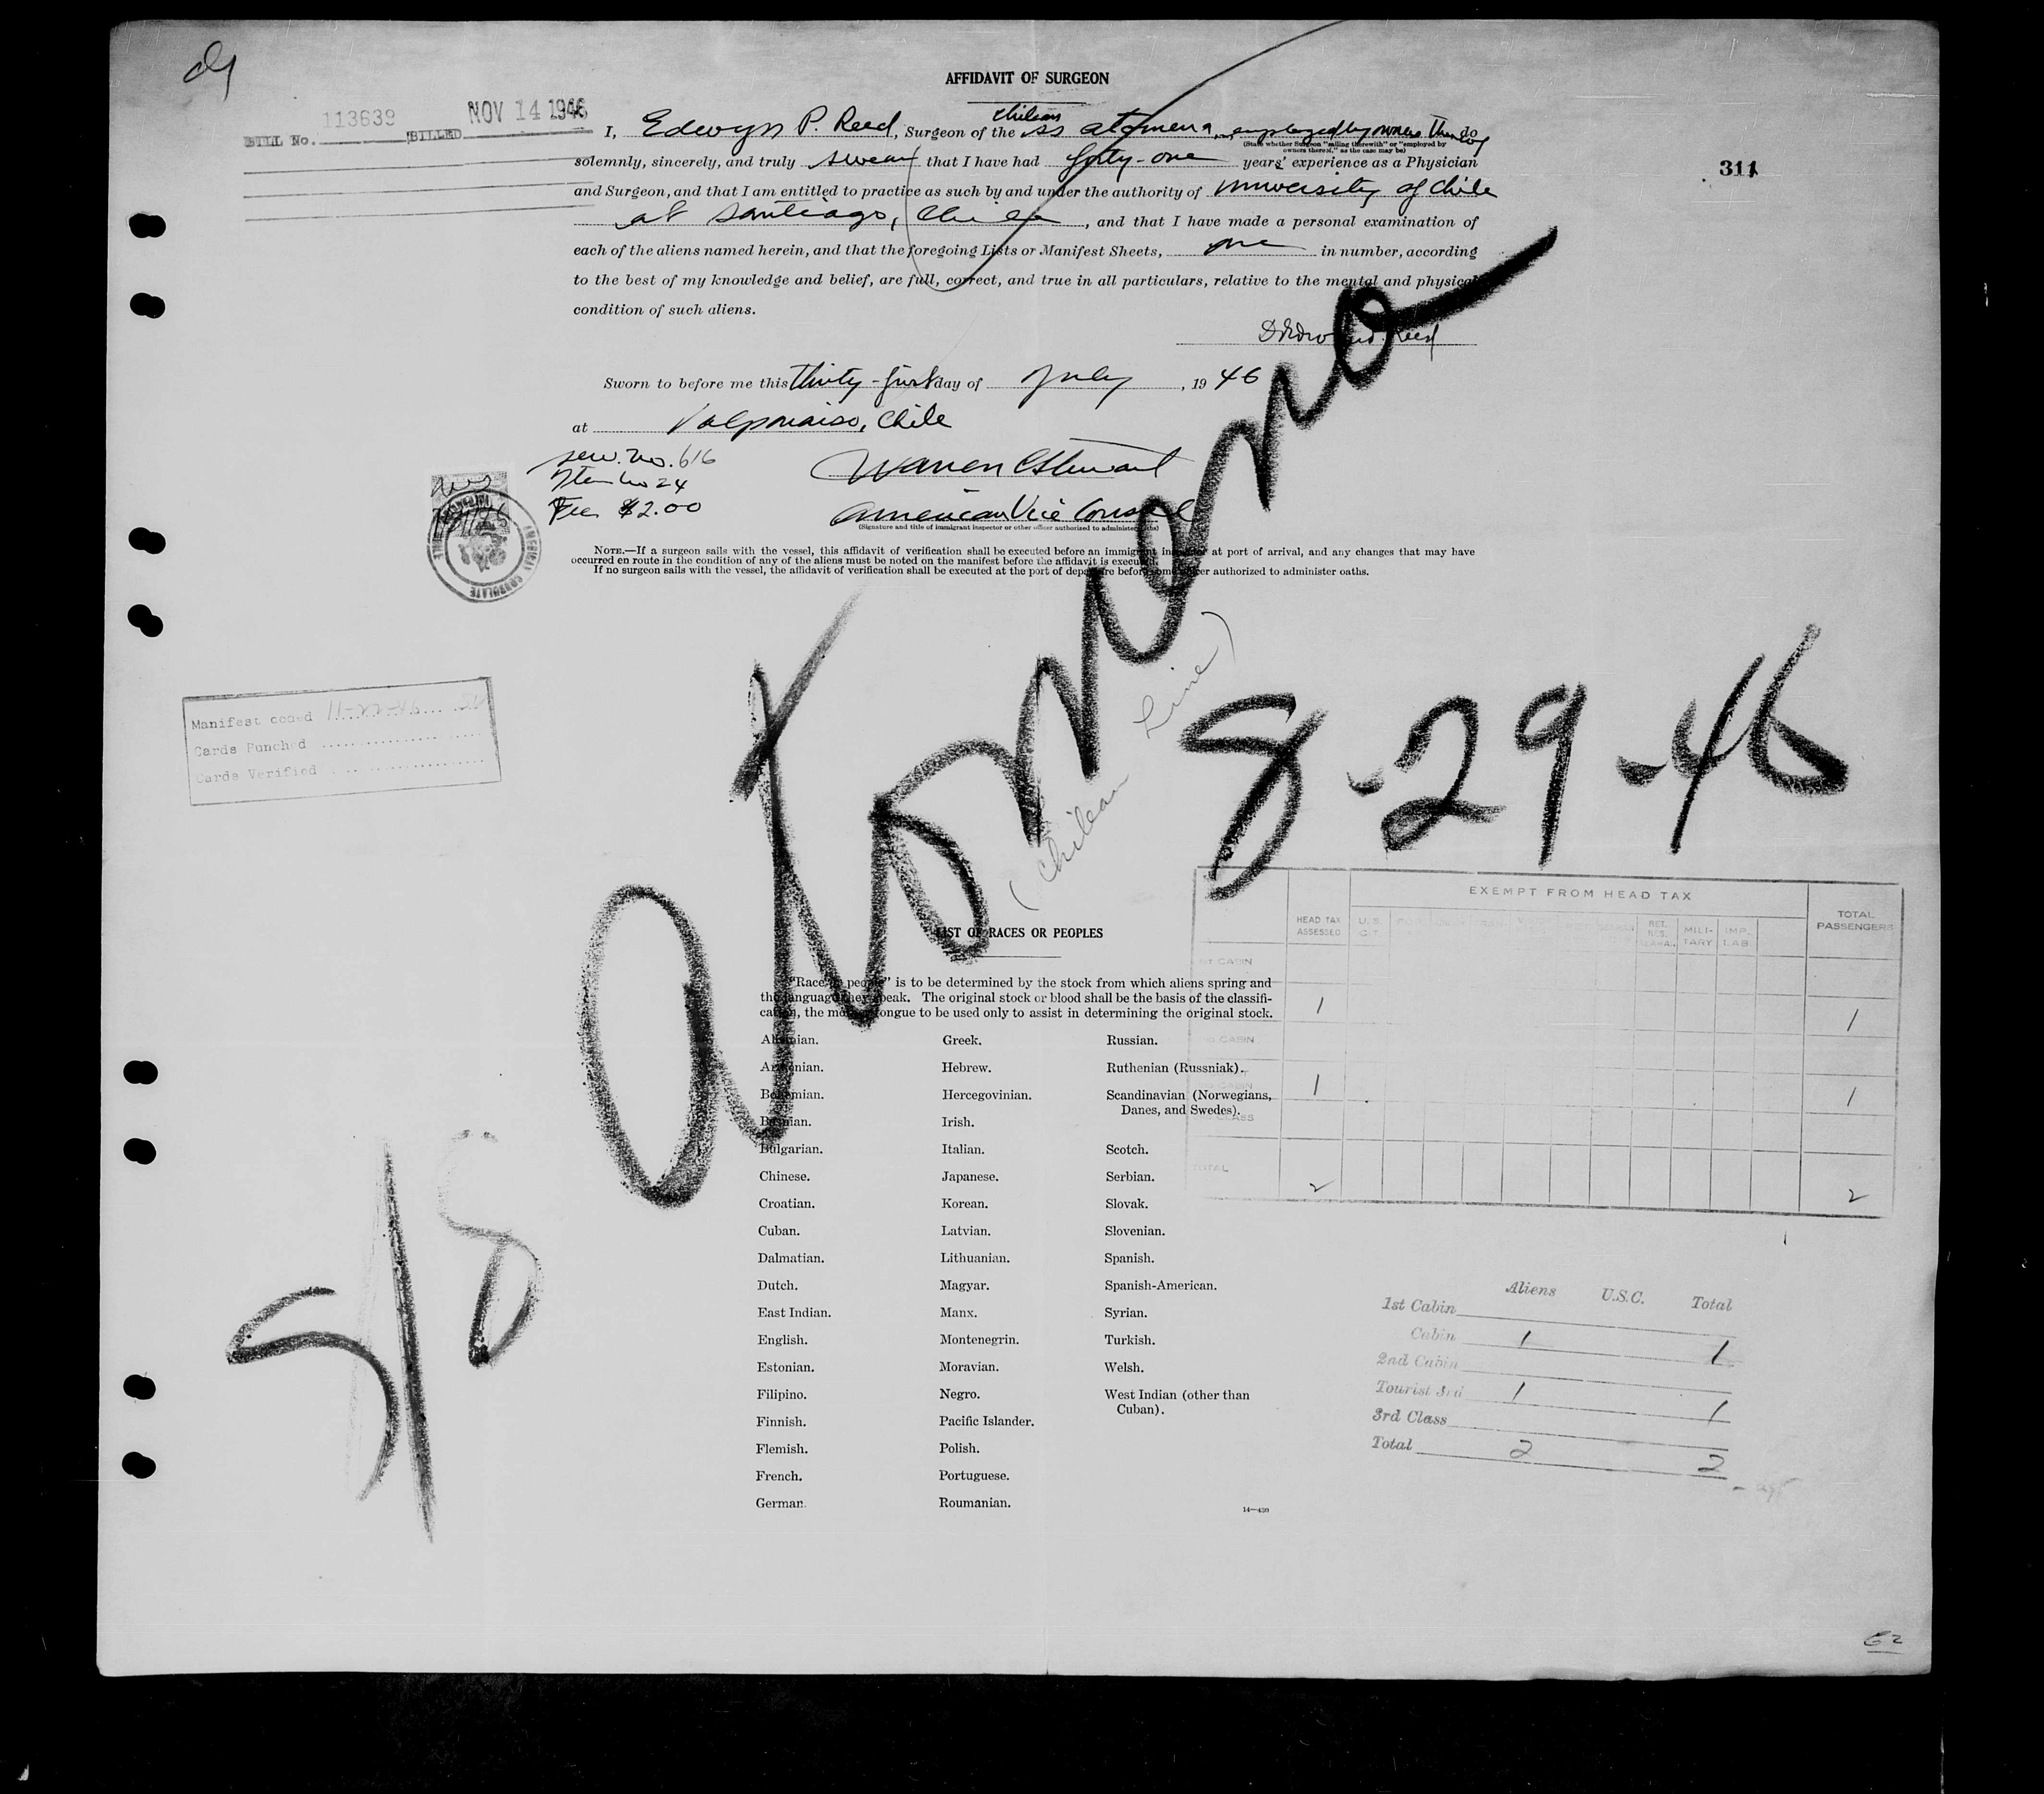 AFFIDAVIT OF SURGEON
BILL No. 113639 BILLED NOV 14 1946
311
Chilean
I, Edwyn P. Reed, Surgeon of the SS Atomena, employed by owners thereof do
(State whether Surgeon "sailing therewith" or "employed by
owners thereof," as the case may be)
solemnly, sincerely, and truly swear that I have had forty-one years' experience as a Physician
and Surgeon, and that I am entitled to practice as such by and under the authority of University of Chile
at Santiago, Chile, and that I have made a personal examination of
each of the aliens named herein, and that the foregoing Lists or Manifest Sheets, one in number, according
to the best of my knowledge and belief, are full, correct, and true in all particulars, relative to the mental and physical
condition of such aliens.
Reed
Sworn to before me this thirty-first day of July, 1946
at Valparaiso, Chile
Serv. No. 616
Item No 24
Fee $2.00
Warren C Stewart
American Vice Consul
(Signature and title of immigrant inspector or other officer authorized to administer oaths)
AMERICAN CONSULATE
NOTE.—If a surgeon sails with the vessel, this affidavit of verification shall be executed before an immigrant inspector at port of arrival, and any changes that may have
occurred en route in the condition of any of the aliens must be noted on the manifest before the affidavit is executed.
If no surgeon sails with the vessel, the affidavit of verification shall be executed at the port of departure before some officer authorized to administer oaths.
Manifest coded 11-22-46
Cards Punched
Cards Verified
Atomena
(Chilean Line)
8-29-46
S/8
LIST OF RACES OR PEOPLES
"Race or people" is to be determined by the stock from which aliens spring and
the language they speak. The original stock or blood shall be the basis of the classifi-
cation, the mother tongue to be used only to assist in determining the original stock.
Albanian. Greek. Russian.
Armenian. Hebrew. Ruthenian (Russniak).
Bohemian. Hercegovinian. Scandinavian (Norwegians,
Danes, and Swedes).
Bosnian. Irish.
Bulgarian. Italian. Scotch.
Chinese. Japanese. Serbian.
Croatian. Korean. Slovak.
Cuban. Latvian. Slovenian.
Dalmatian. Lithuanian. Spanish.
Dutch. Magyar. Spanish-American.
East Indian. Manx. Syrian.
English. Montenegrin. Turkish.
Estonian. Moravian. Welsh.
Filipino. Negro. West Indian (other than
Cuban).
Finnish. Pacific Islander.
Flemish. Polish.
French. Portuguese.
German. Roumanian.
14—430
EXEMPT FROM HEAD TAX
HEAD TAX ASSESSED U.S. CIT. RET. RES. MILI-TARY IMP. LAB. TOTAL PASSENGERS
1ST CABIN
1 1
CABIN
1 1
CLASS
TOTAL 2 2
Aliens U.S.C. Total
1st Cabin
Cabin 1 1
2nd Cabin
Tourist 3rd 1 1
3rd Class
Total 2 2
62